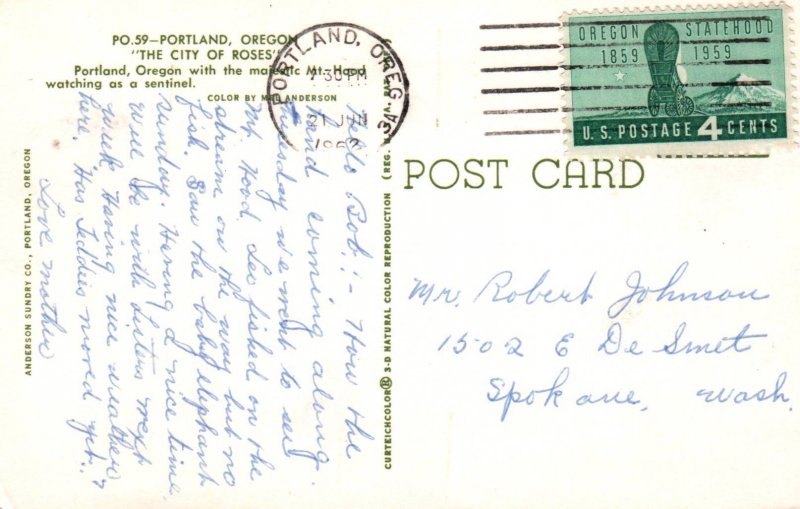 PO.59—PORTLAND, OREGON
"THE CITY OF ROSES"
Portland, Oregon with the majestic Mt. Hood
watching as a sentinel.
COLOR BY ANDERSON
PORTLAND, OREG
30 PM
21 JUN
1962
OREGON STATEHOOD
1859 1959
U.S. POSTAGE 4 CENTS
POST CARD
Hello Bob:- How the
hand coming along.
Tuesday we went to see
Mt. Hood Leo fished on the
stream on the way but no
fish. Saw the baby elephant
Sunday. Having a nice time
will be with sisters next
week. Having nice weather
here. Has Teddies moved yet?
Love mother
Mr. Robert Johnson
1502 E De Smet
Spokane, Wash.
ANDERSON SUNDRY CO., PORTLAND, OREGON
CURTEICHCOLOR® 3-D NATURAL COLOR REPRODUCTION (REG. U.S.A. PAT.